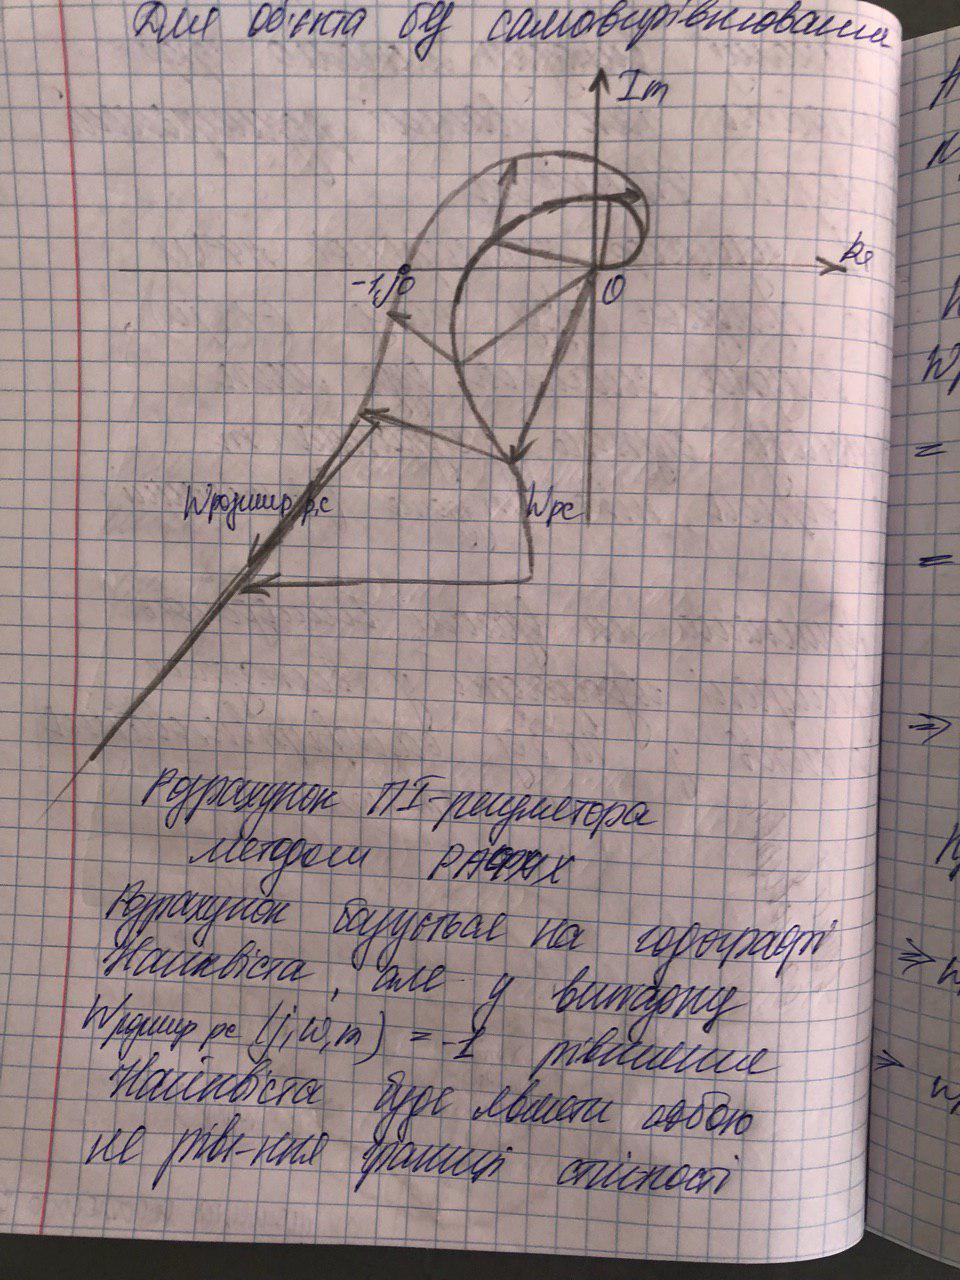 Для об'єкта без самовирівнювання
Im
Re
-1,j0
0
Wрозшир р.с
Wрс
Розрахунок ПІ-регулятора
методом РАФЧХ
Розрахунок базується на годографі
Найквіста, але у випадку
Wрозшир рс (j,ω,m) = -1 рівняння
Найквіста буде являти собою
не рівн-ння границі стійкості